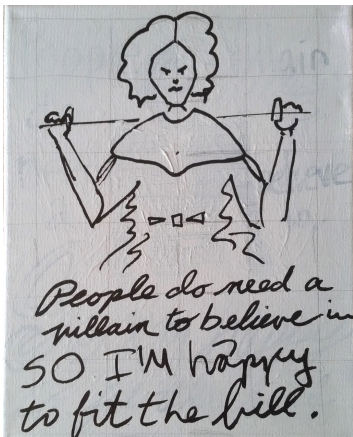 People do need a
villain to believe in
SO I'M happy
to fit the bill.